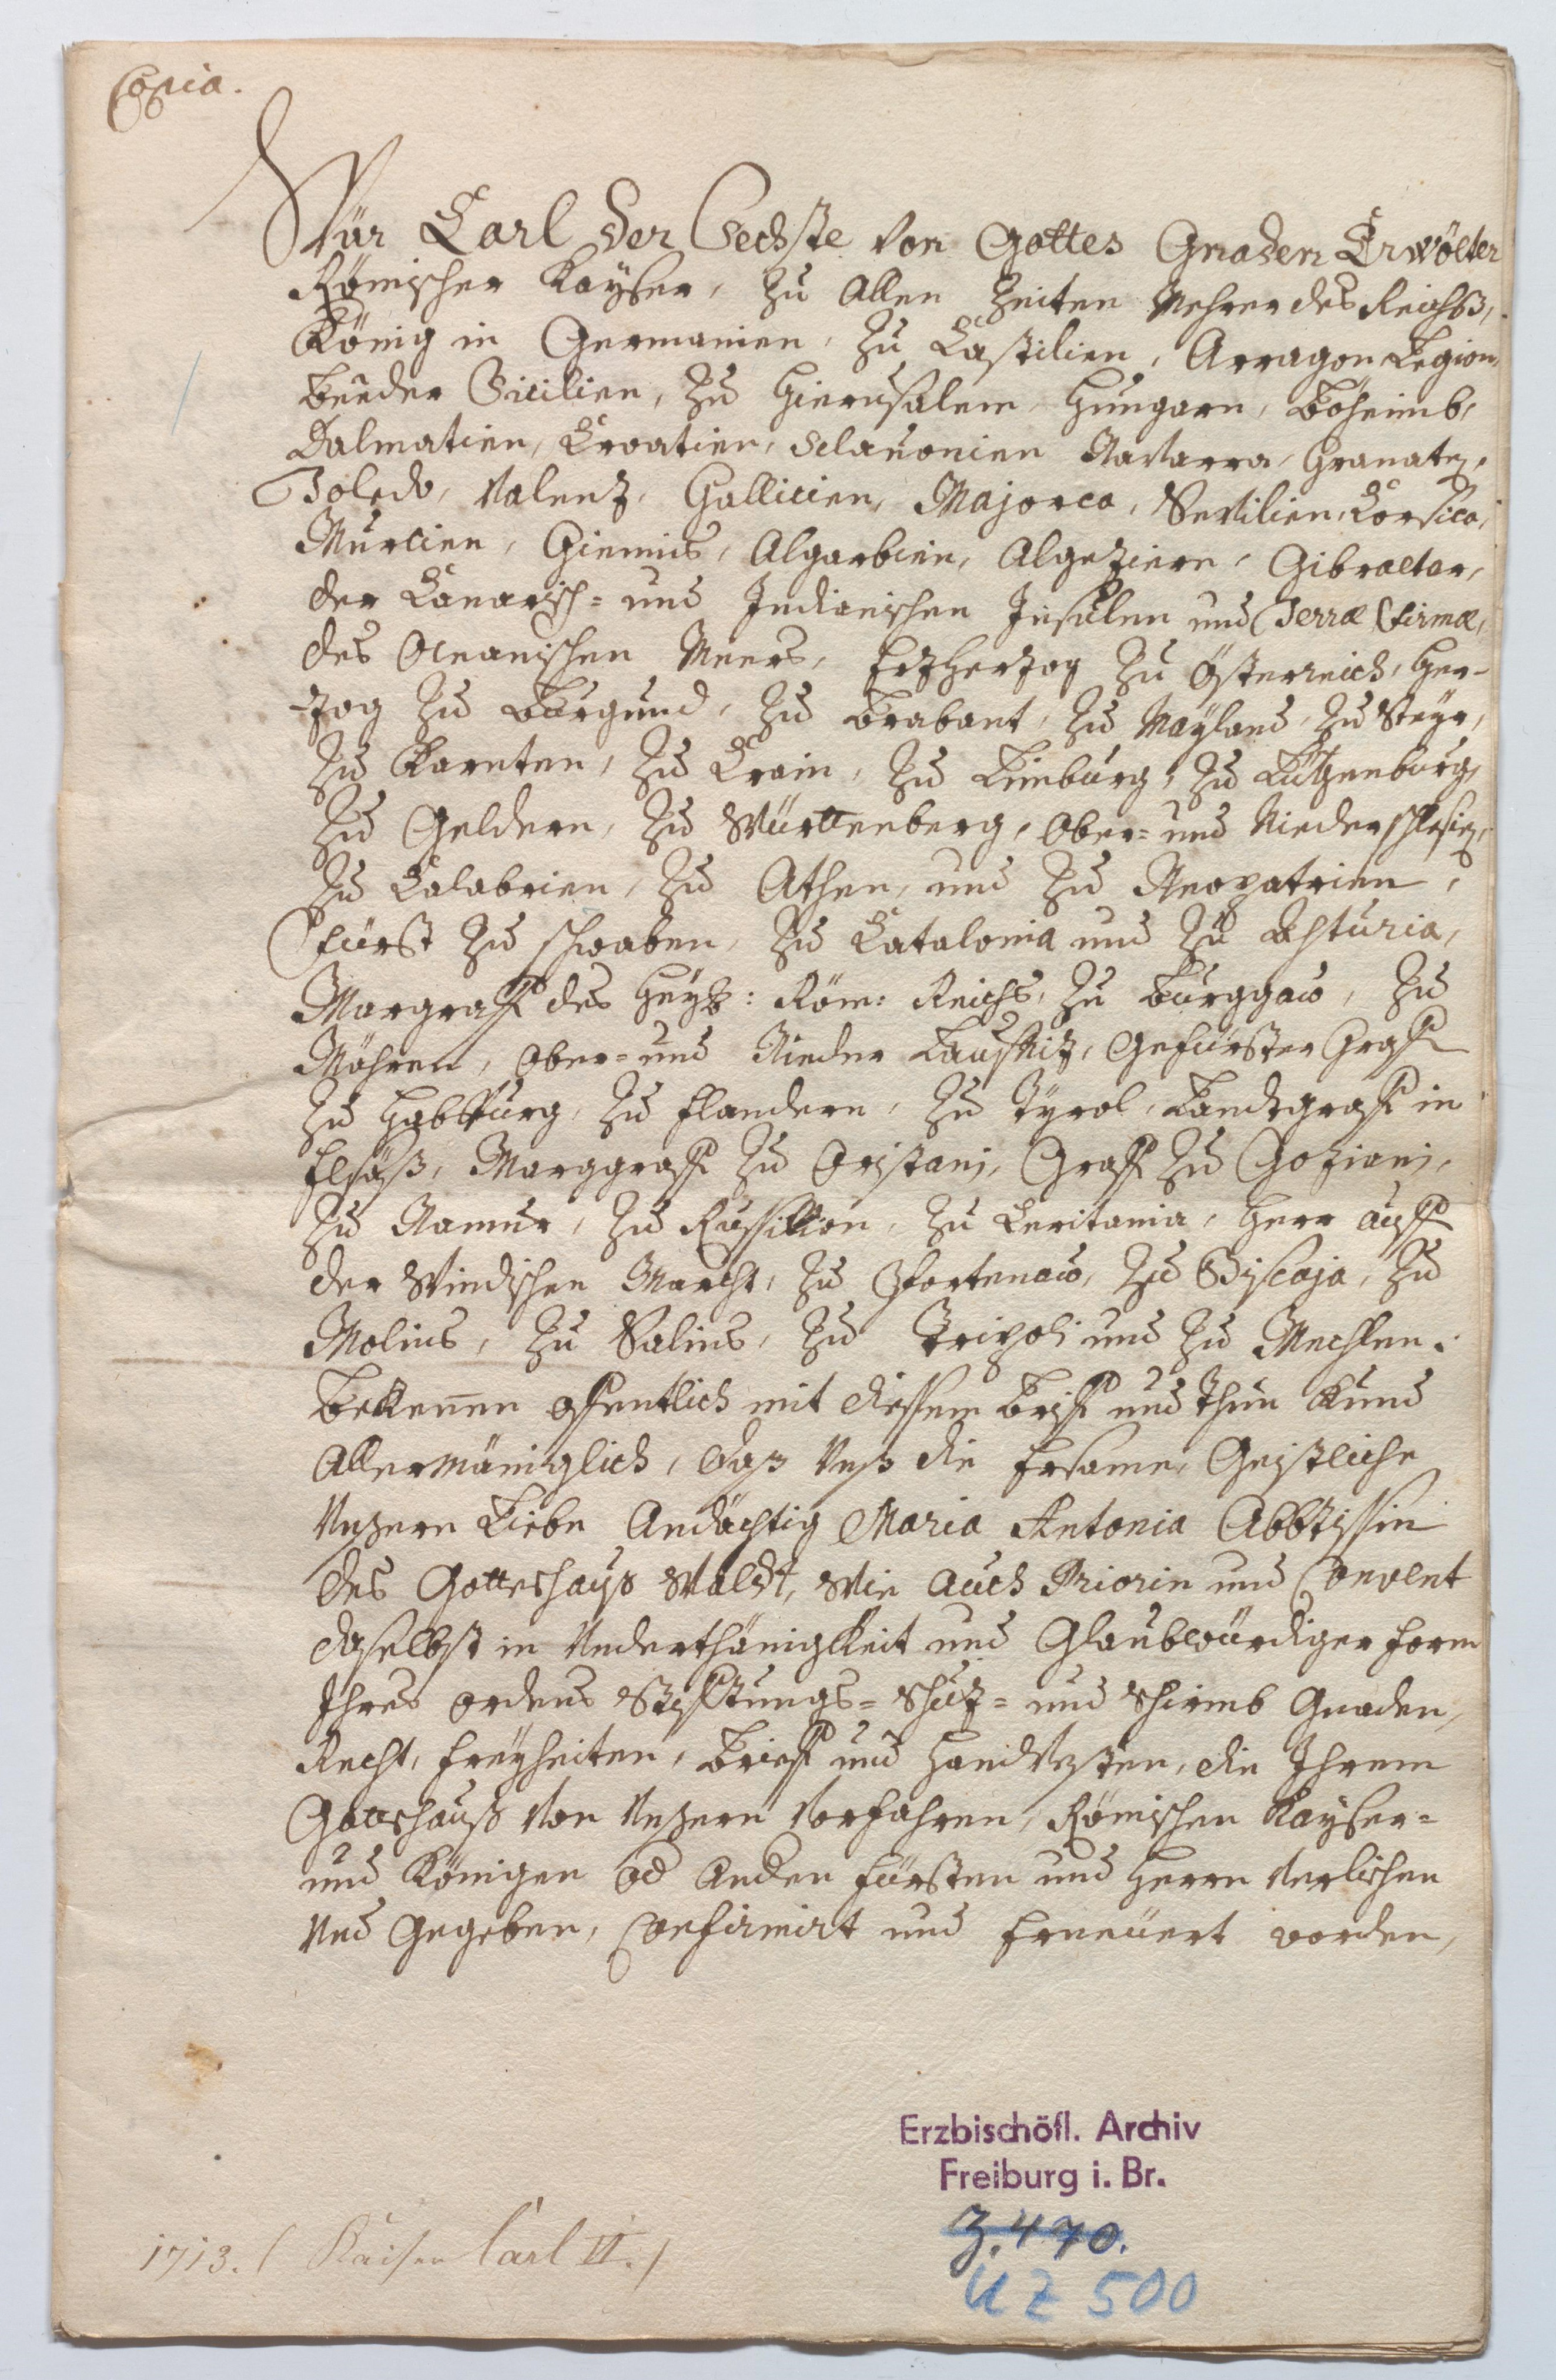 Copia.
Wür Carl der Sechste von Gottes Gnaden Erwölter
Römischer Kayser, zu Allen Zeiten Mehrer des Reichß,
König in Germanien, zu Castilien, Arragon Legion,
beeder Sicilien, zu Hierusalem, Hungarn, Böheimb,
Dalmatien, Croatien, Sclavonien Navarra, Granaten,
Toledo, Valenz, Gallicien, Majorca, Sevilien, Corsica,
Murcien, Giennis, Algarbien, Algezieren, Gibraltar,
der Canarisch- und Indianischen Insulen und Terræ firmæ,
des Oceanischen Meers, Erzherzog zu Österreich, Her-
-zog zu Burgund, zu Brabant, zu Mayland, zu Steyr,
zu Kärnten, zu Crain, zu Limburg, zu Lützenburg,
zu Geldern, zu Württenberg, Ober- und Nieder schlesien,
zu Calabrien, zu Athen, und zu Neopatrien,
Fürst zu schwaben, zu Catalonia und zu Asturia,
Margraff des Heyl: Röm: Reichs, zu Burggaw, zu
Mähren, Ober- und Nieder Laußnitz, Gefürster Graff
zu Habspurg, zu Flandern, zu Tyrol, Landtgraff in
Elsäß, Marggraff zu Oristani, Graff zu Goziani,
zu Namur, zu Russilion, zu Ceritania, Herr auff
der Windischen March, zu Portenaw, zu Biscaja, zu
Molins, zu Salins, zu Tripoli und zu Mechlen.
Bekennen offentlich mit diessem Brieff und Thun Kund
Allermäniglich, daß Unß die Ersame, Geistliche
Unsere Liebe Andächtig Maria Antonia Abbtissin
des Gotteshauß Waldt, Wie auch Priorin und Convent
daselbst in Underthänigkeit und Glaubwürdiger Form
Ihres Ordens Stifftungs- Schuz- und Schirmb Gnaden,
Recht, Freyheiten, Brieff und Handvesten, die Ihrem
Gottshauß von Unsern Vorfahren, Römischen Kayser-
und Königen od Andern Fürsten und Herrn Verlichen
Und Gegeben, Confirmirt und Erneüert worden,
Erzbischöfl. Archiv
Freiburg i. Br.
Z. 470.
UZ 500
1713. (Kaiser Carl VI.)